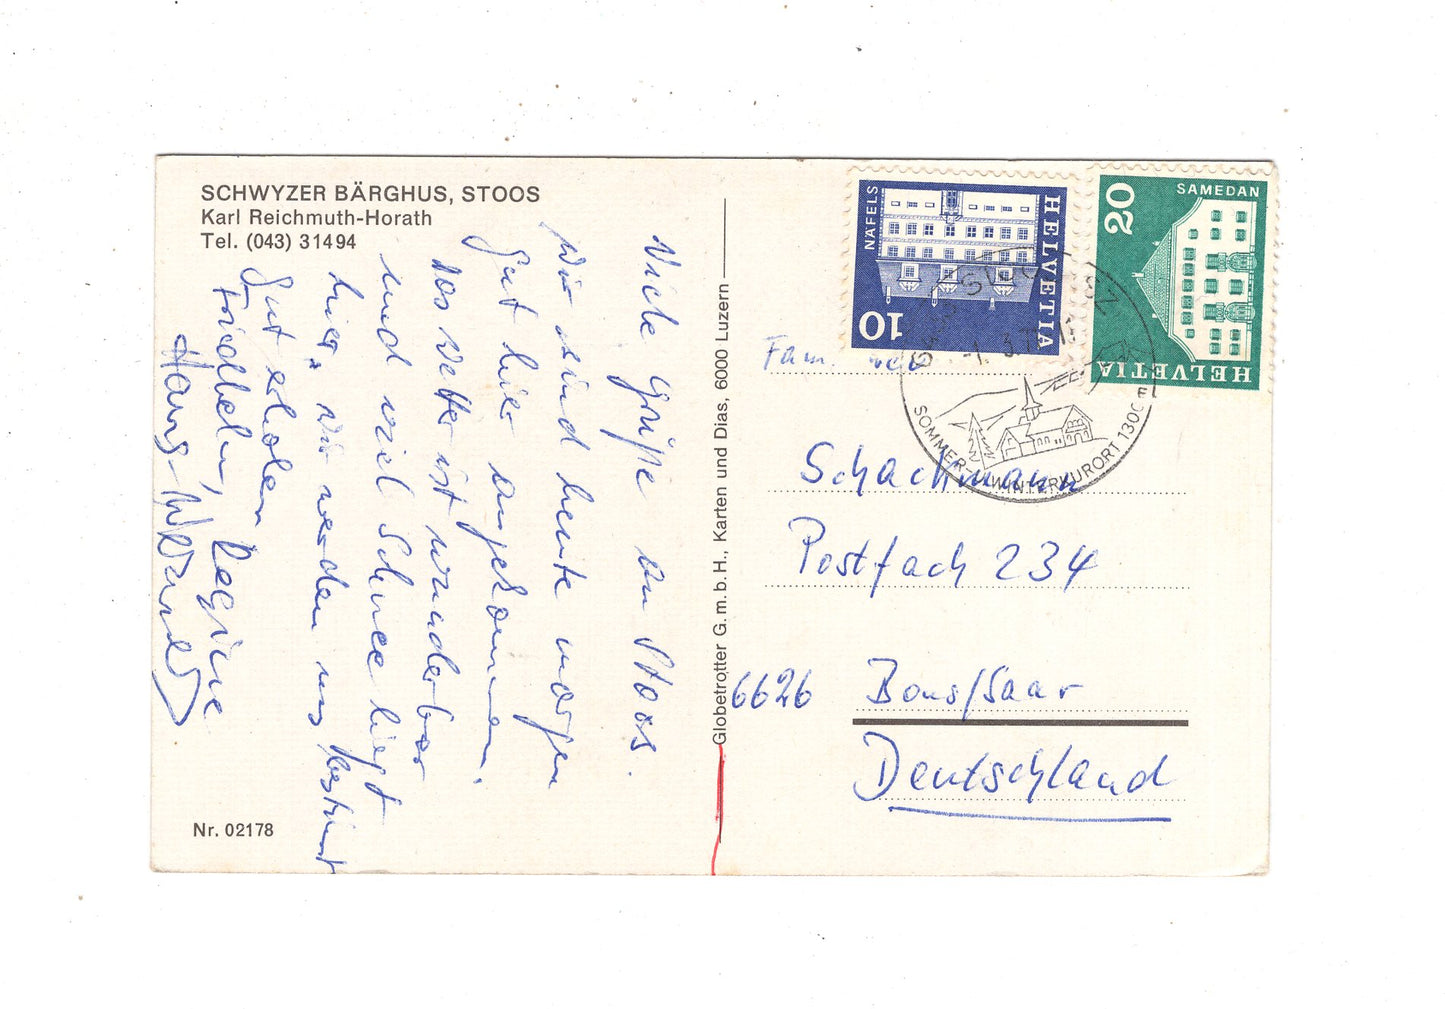 SCHWYZER BÄRGHUS, STOOS
Karl Reichmuth-Horath
Tel. (043) 31494
Viele Grüße aus Stoos.
Wir sind heute morgen
gut hier angekommen.
Das Wetter ist wunderbar
und viel Schnee liegt
hier. Wir werden uns bestimmt
gut erholen
Friedhelm, Regine
Hans-
Nr. 02178
Globetrotter G.m.b.H., Karten und Dias, 6000 Luzern
NÄFELS
HELVETIA
10
SAMEDAN
20
HELVETIA
SOMMER- WINTERKURORT 1300
Fam.
Schachmann
Postfach 234
6626 Bous/Saar
Deutschland